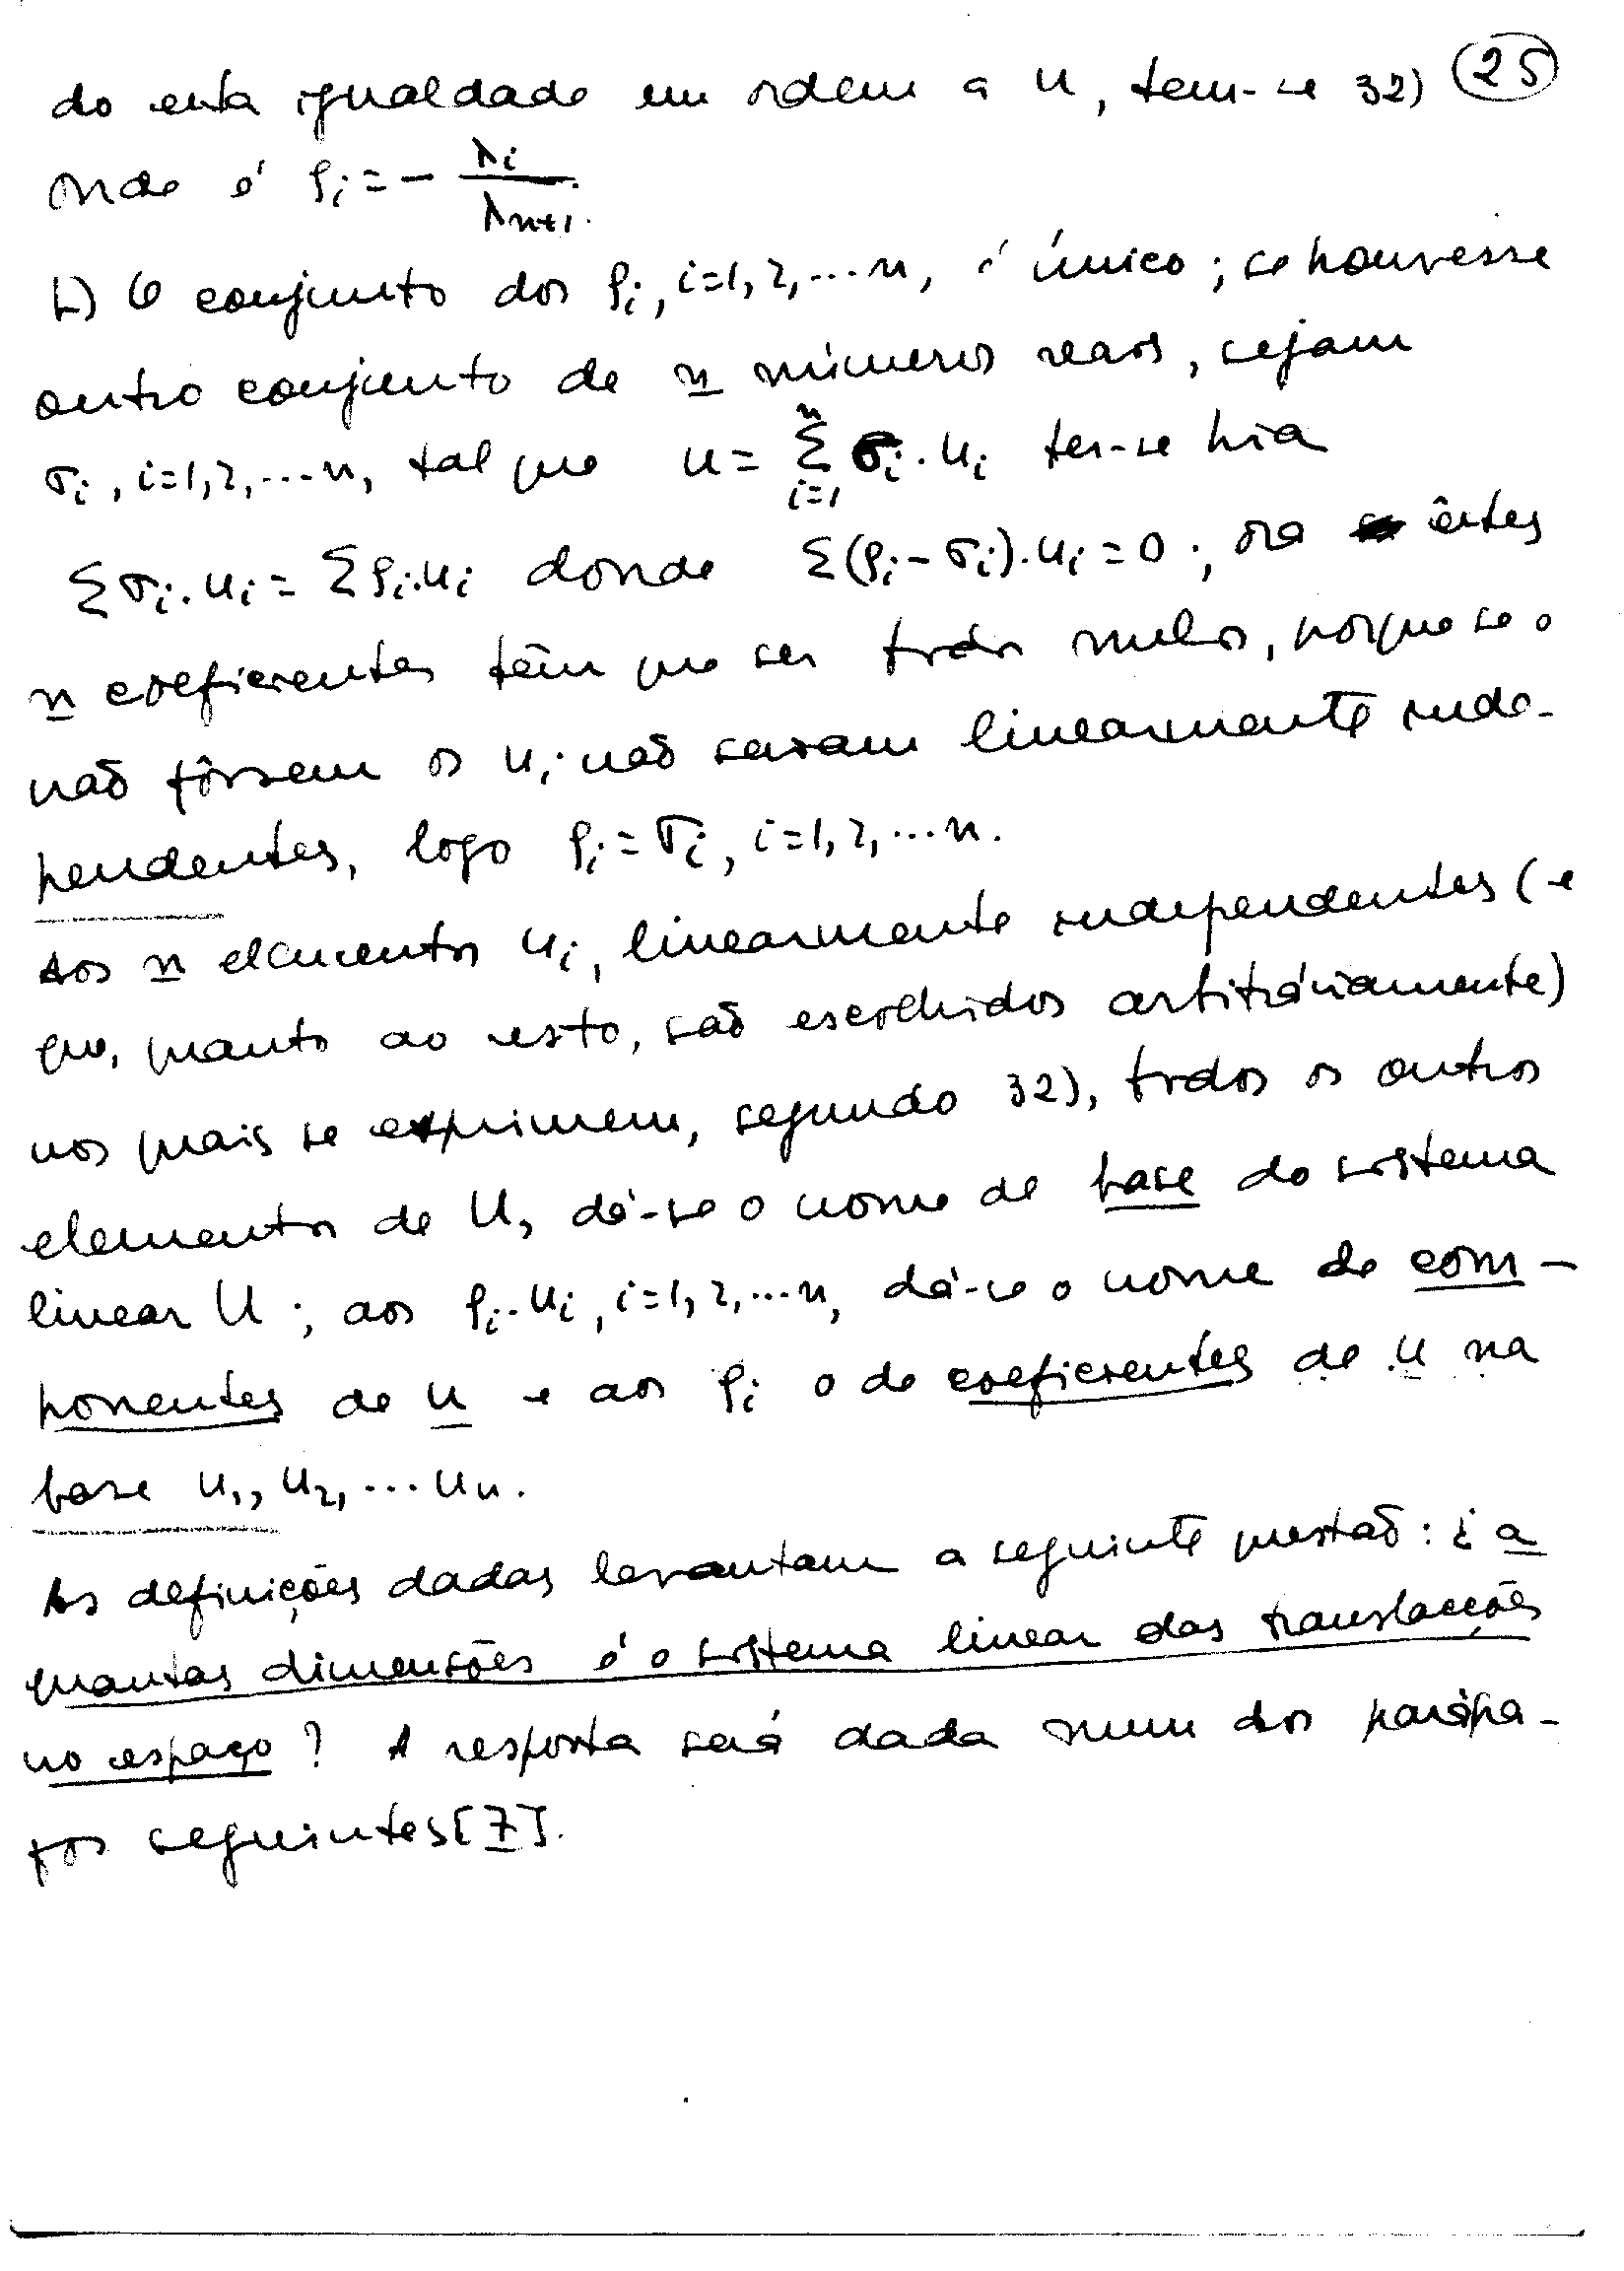 do esta igualdade em ordem a u, tem-se 32) (25)
onde é ρi = - λi / λn+1.
b) O conjunto dos ρi, i=1,2,...n, é único; se houvesse
outro conjunto de n números reais, sejam
σi, i=1,2,...n, tal que u = Σ_{i=1}^{n} σi.ui ter-se hia
Σσi.ui = Σρi.ui donde Σ(ρi-σi).ui=0; ora êstes
n coeficientes têm que ser todos nulos, porque se o
não fôssem os ui não seriam linearmente inde-
pendentes, logo ρi=σi, i=1,2,...n.
Aos n elementos ui, linearmente independentes (e
que, quanto ao resto, são escolhidos arbitráriamente)
nos quais se exprimem, segundo 32), todos os outros
elementos de U, dá-se o nome de base do sistema
linear U; aos ρi.ui, i=1,2,...n, dá-se o nome de com-
ponentes de u e aos ρi o de coeficientes de u na
base u1, u2, ... un.
As definições dadas levantam a seguinte questão: ¿ a
quantas dimensões é o sistema linear das translacções
no espaço? A resposta será dada num dos parágra-
fos seguintes [7].